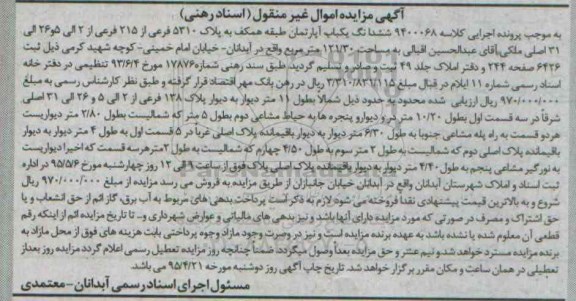 آگهی مزایده اموال غیر منقول (اسناد رهنی)
به موجب پرونده اجرایی کلاسه ۹۴۰۰۰۶۸ ششدانگ یکباب آپارتمان طبقه همکف به پلاک ۵۳۱۰ فرعی از ۲۱۵ فرعی از ۲ الی ۵ و ۲۶ الی
۳۱ اصلی ملکی آقای عبدالحسین اقبالی به مساحت ۱۲۱/۳۰ متر مربع واقع در آبدانان- خیابان امام خمینی- کوچه شهید کرمی ذیل ثبت
۶۴۲۶ صفحه ۲۴۴ و دفتر املاک جلد ۴۹ ثبت و صادر و تسلیم گردید. طبق سند رهنی شماره ۱۷۸۷۶ مورخ ۹۳/۶/۴ تنظیمی در دفتر خانه
اسناد رسمی شماره ۱۱ ایلام در قبال مبلغ ریال در رهن بانک مهر اقتصاد قرار گرفته و طبق نظر کارشناس رسمی به مبلغ
۹۷۰/۰۰۰/۰۰۰ ریال ارزیابی شده محدود به حدود ذیل شمالا بطول ۱۱ متر دیوار به دیوار پلاک ۱۳۸ فرعی از ۲ الی ۵ و ۲۶ الی ۳۱ اصلی
شرقاً در سه قسمت اول بطول ۱۰/۲۰ متر در و دیوار و پنجره ها به حیاط مشاعی دوم بطول ۵ متر که شمالیست بطول ۲/۸۰ متر دیواریست
هردو قسمت به راه پله مشاعی جنوبا به طول ۶/۳۰ متر دیوار به دیوار باقیمانده پلاک اصلی غرباً در ۵ قسمت اول به طول ۴ متر دیوار به دیوار
باقیمانده پلاک اصلی دوم که شمالیست به طول ۲ متر سوم به طول ۴/۵۰ چهارم که شمالیست به طول ۲ متر هرسه قسمت که اخیرا دیواریست
به نورگیر مشاعی پنجم به طول ۴/۴۰ متر دیوار به دیوار باقیمانده پلاک اصلی پلاک فوق از ساعت ۹ الی ۱۲ روز چهارشنبه مورخ ۹۵/۵/۶ در اداره
ثبت اسناد و املاک شهرستان آبدانان واقع در آبدانان خیابان جانبازان از طریق مزایده به فروش می رسد مزایده از مبلغ ۹۷۰/۰۰۰/۰۰۰ ریال
شروع و به بالاترین قیمت پیشنهادی نقدا فروخته می شود لازم به ذکر است پرداخت بدهی های مربوط به آب برق، گاز اعم از حق انشعاب و یا
حق اشتراک و مصرف در صورتی که مورد مزایده دارای آنها باشد و نیز بدهی های مالیاتی و عوارض شهرداری و... تا تاریخ مزایده اعم از اینکه رقم
قطعی آن معلوم شده یا نشده باشد به عهده برنده مزایده است و نیز در صورت وجود مازاد وجوه پرداختی بابت هزینه های فوق از محل مازاد به
برنده مزایده مسترد خواهد شد و نیم عشر و حق مزایده بعداً وصول میگردد. ضمناً چنانچه روز مزایده تعطیل رسمی اعلام گردد مزایده روز بعد از
تعطیلی در همان ساعت و مکان مقرر برگزار خواهد شد. تاریخ چاپ آگهی روز دوشنبه مورخه ۹۵/۴/۲۱ می باشد.
مسئول اجرای اسناد رسمی آبدانان-معتمدی